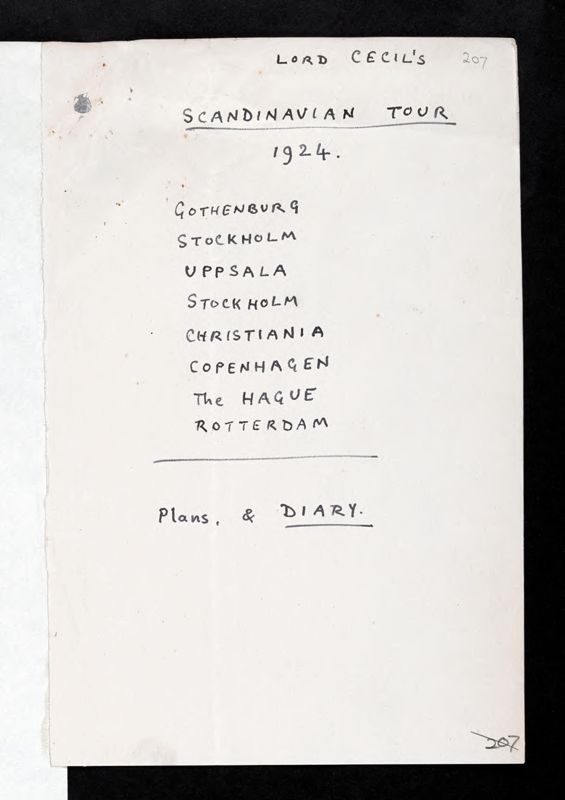 LORD CECIL'S 207
SCANDINAVIAN TOUR
1924.
GOTHENBURG
STOCKHOLM
UPPSALA
STOCKHOLM
CHRISTIANIA
COPENHAGEN
The HAGUE
ROTTERDAM
Plans, & DIARY.
207